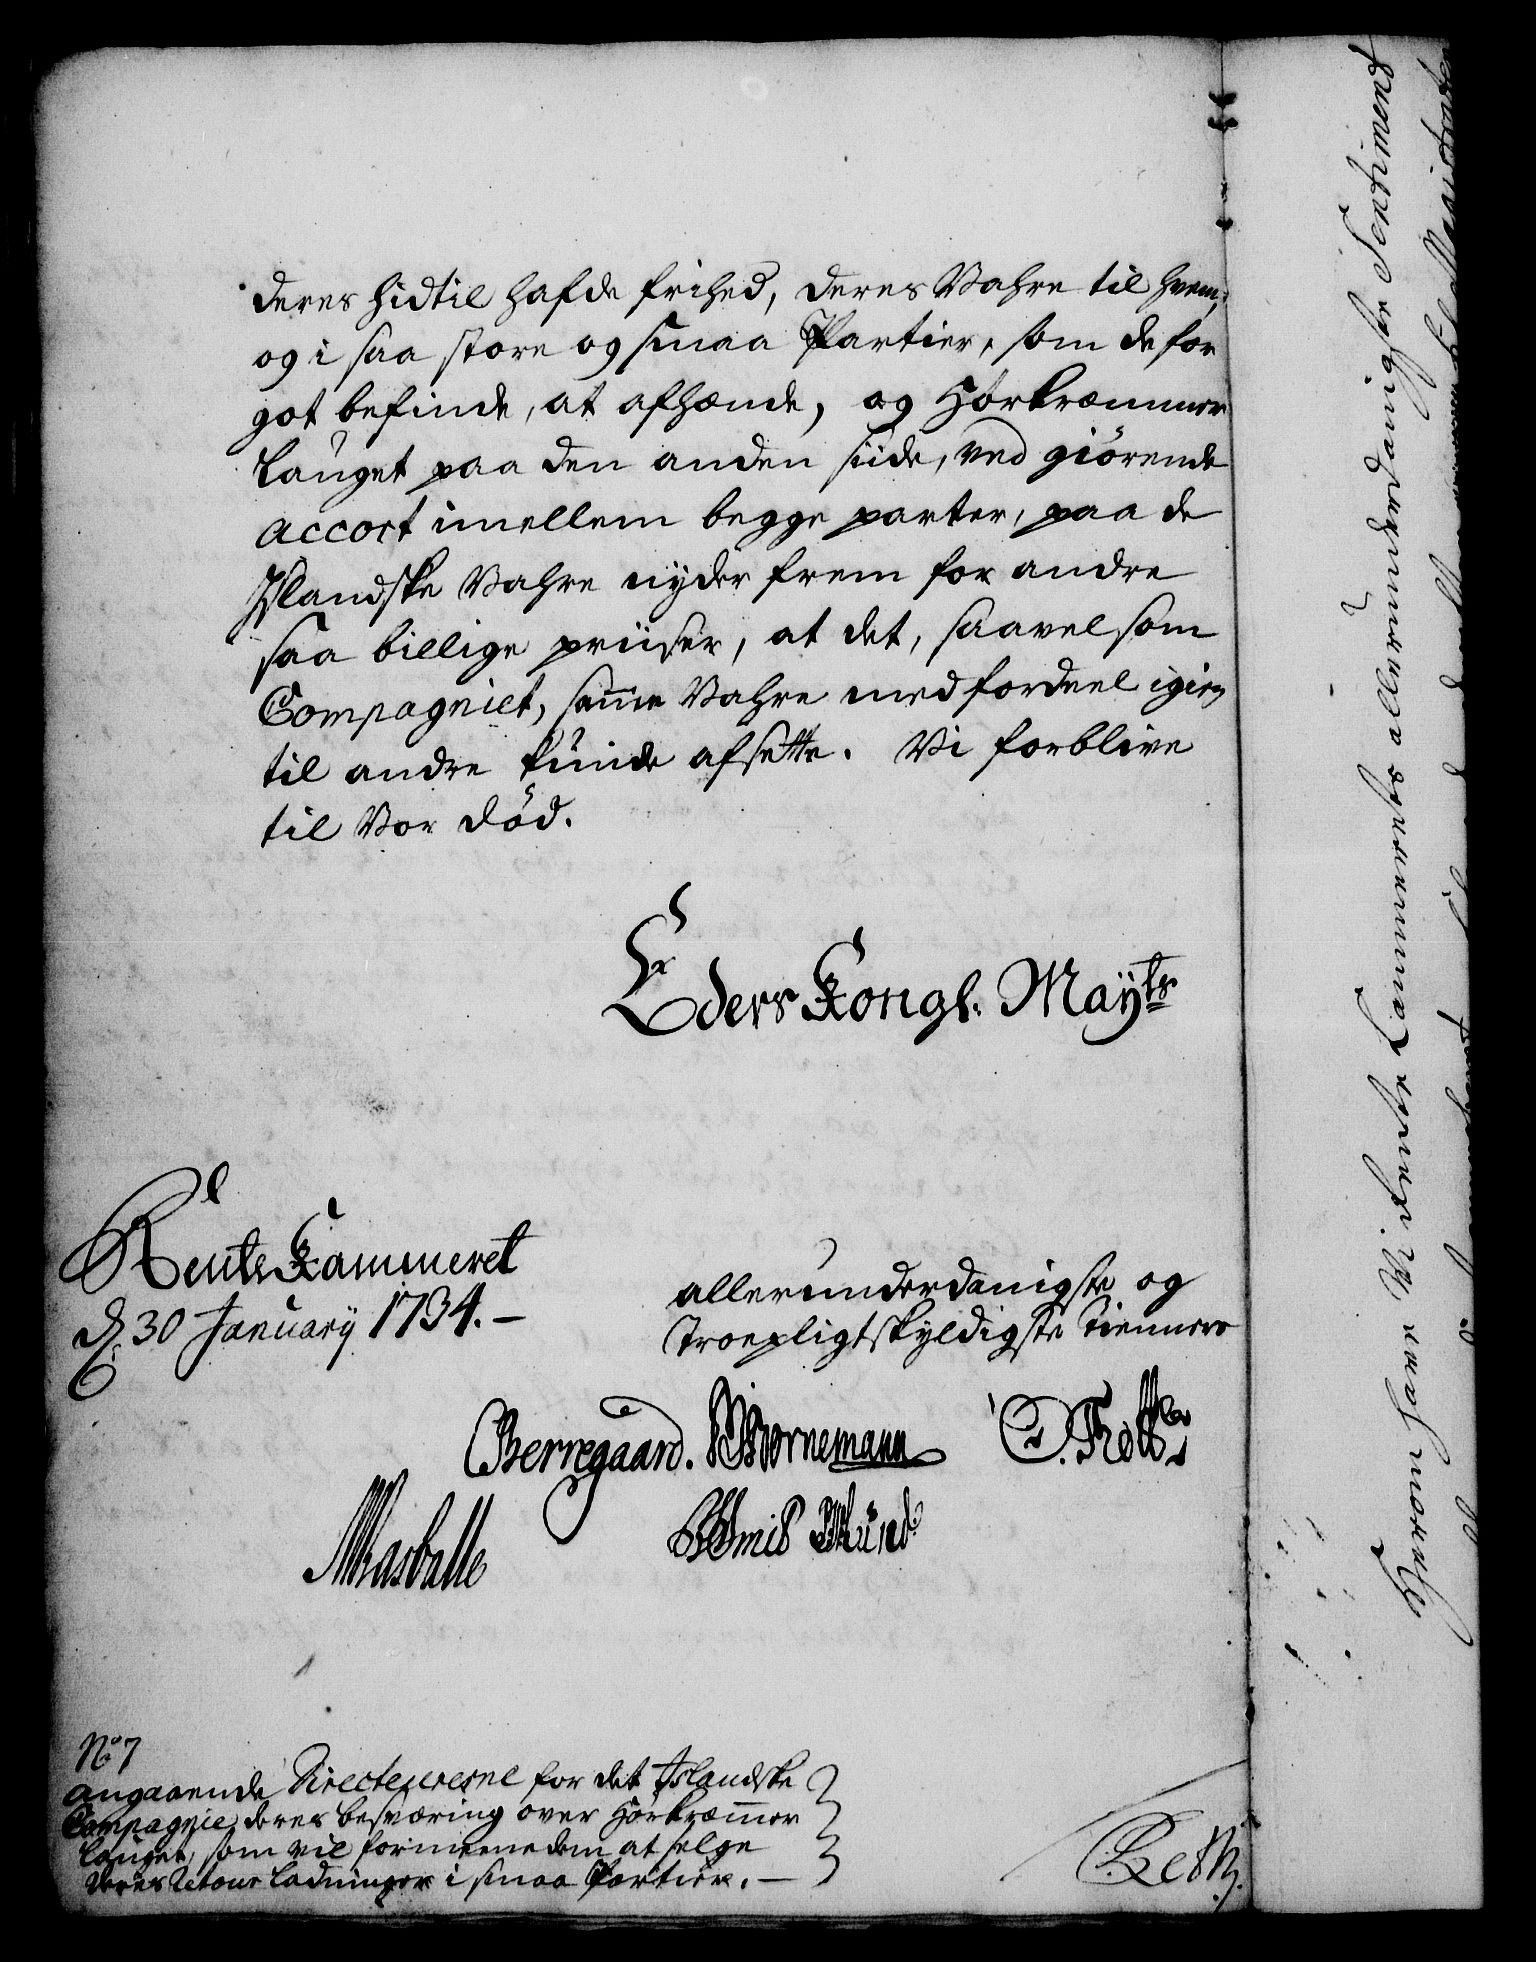 deres hidtil hafde frihed, deres Vahre til hvem,
og i saa store og smaa Partier, som de for
got befinde, at afhænde, og Hørkræmmer
lauget paa den anden siide, ved giørende
accort imellem begge parter, paa de
Islandske Vahre nyder frem for andre
saa billige priiser, at det, saavel som
Compagniet, samme Vahre med fordeel igien
til andre kunde afsette. Vi forblive
til Vor død.
Eders Kongl. Mayts
RenteKammeret
d. 30 January 1734.
allerunderdanigste og
Troepligtskyldigste tienner
Berregaard. Bornemann
Rasballe
No 7
angaaende Directeurerne for det Islandske
Compagnie, deres besværing over Hørkræmmer
lauget, som vil formeene dem at selge
deres Retour ladninger i smaa Partier.
Herom haver Vi Rente Cammerets allerunderdanigste Sentiment